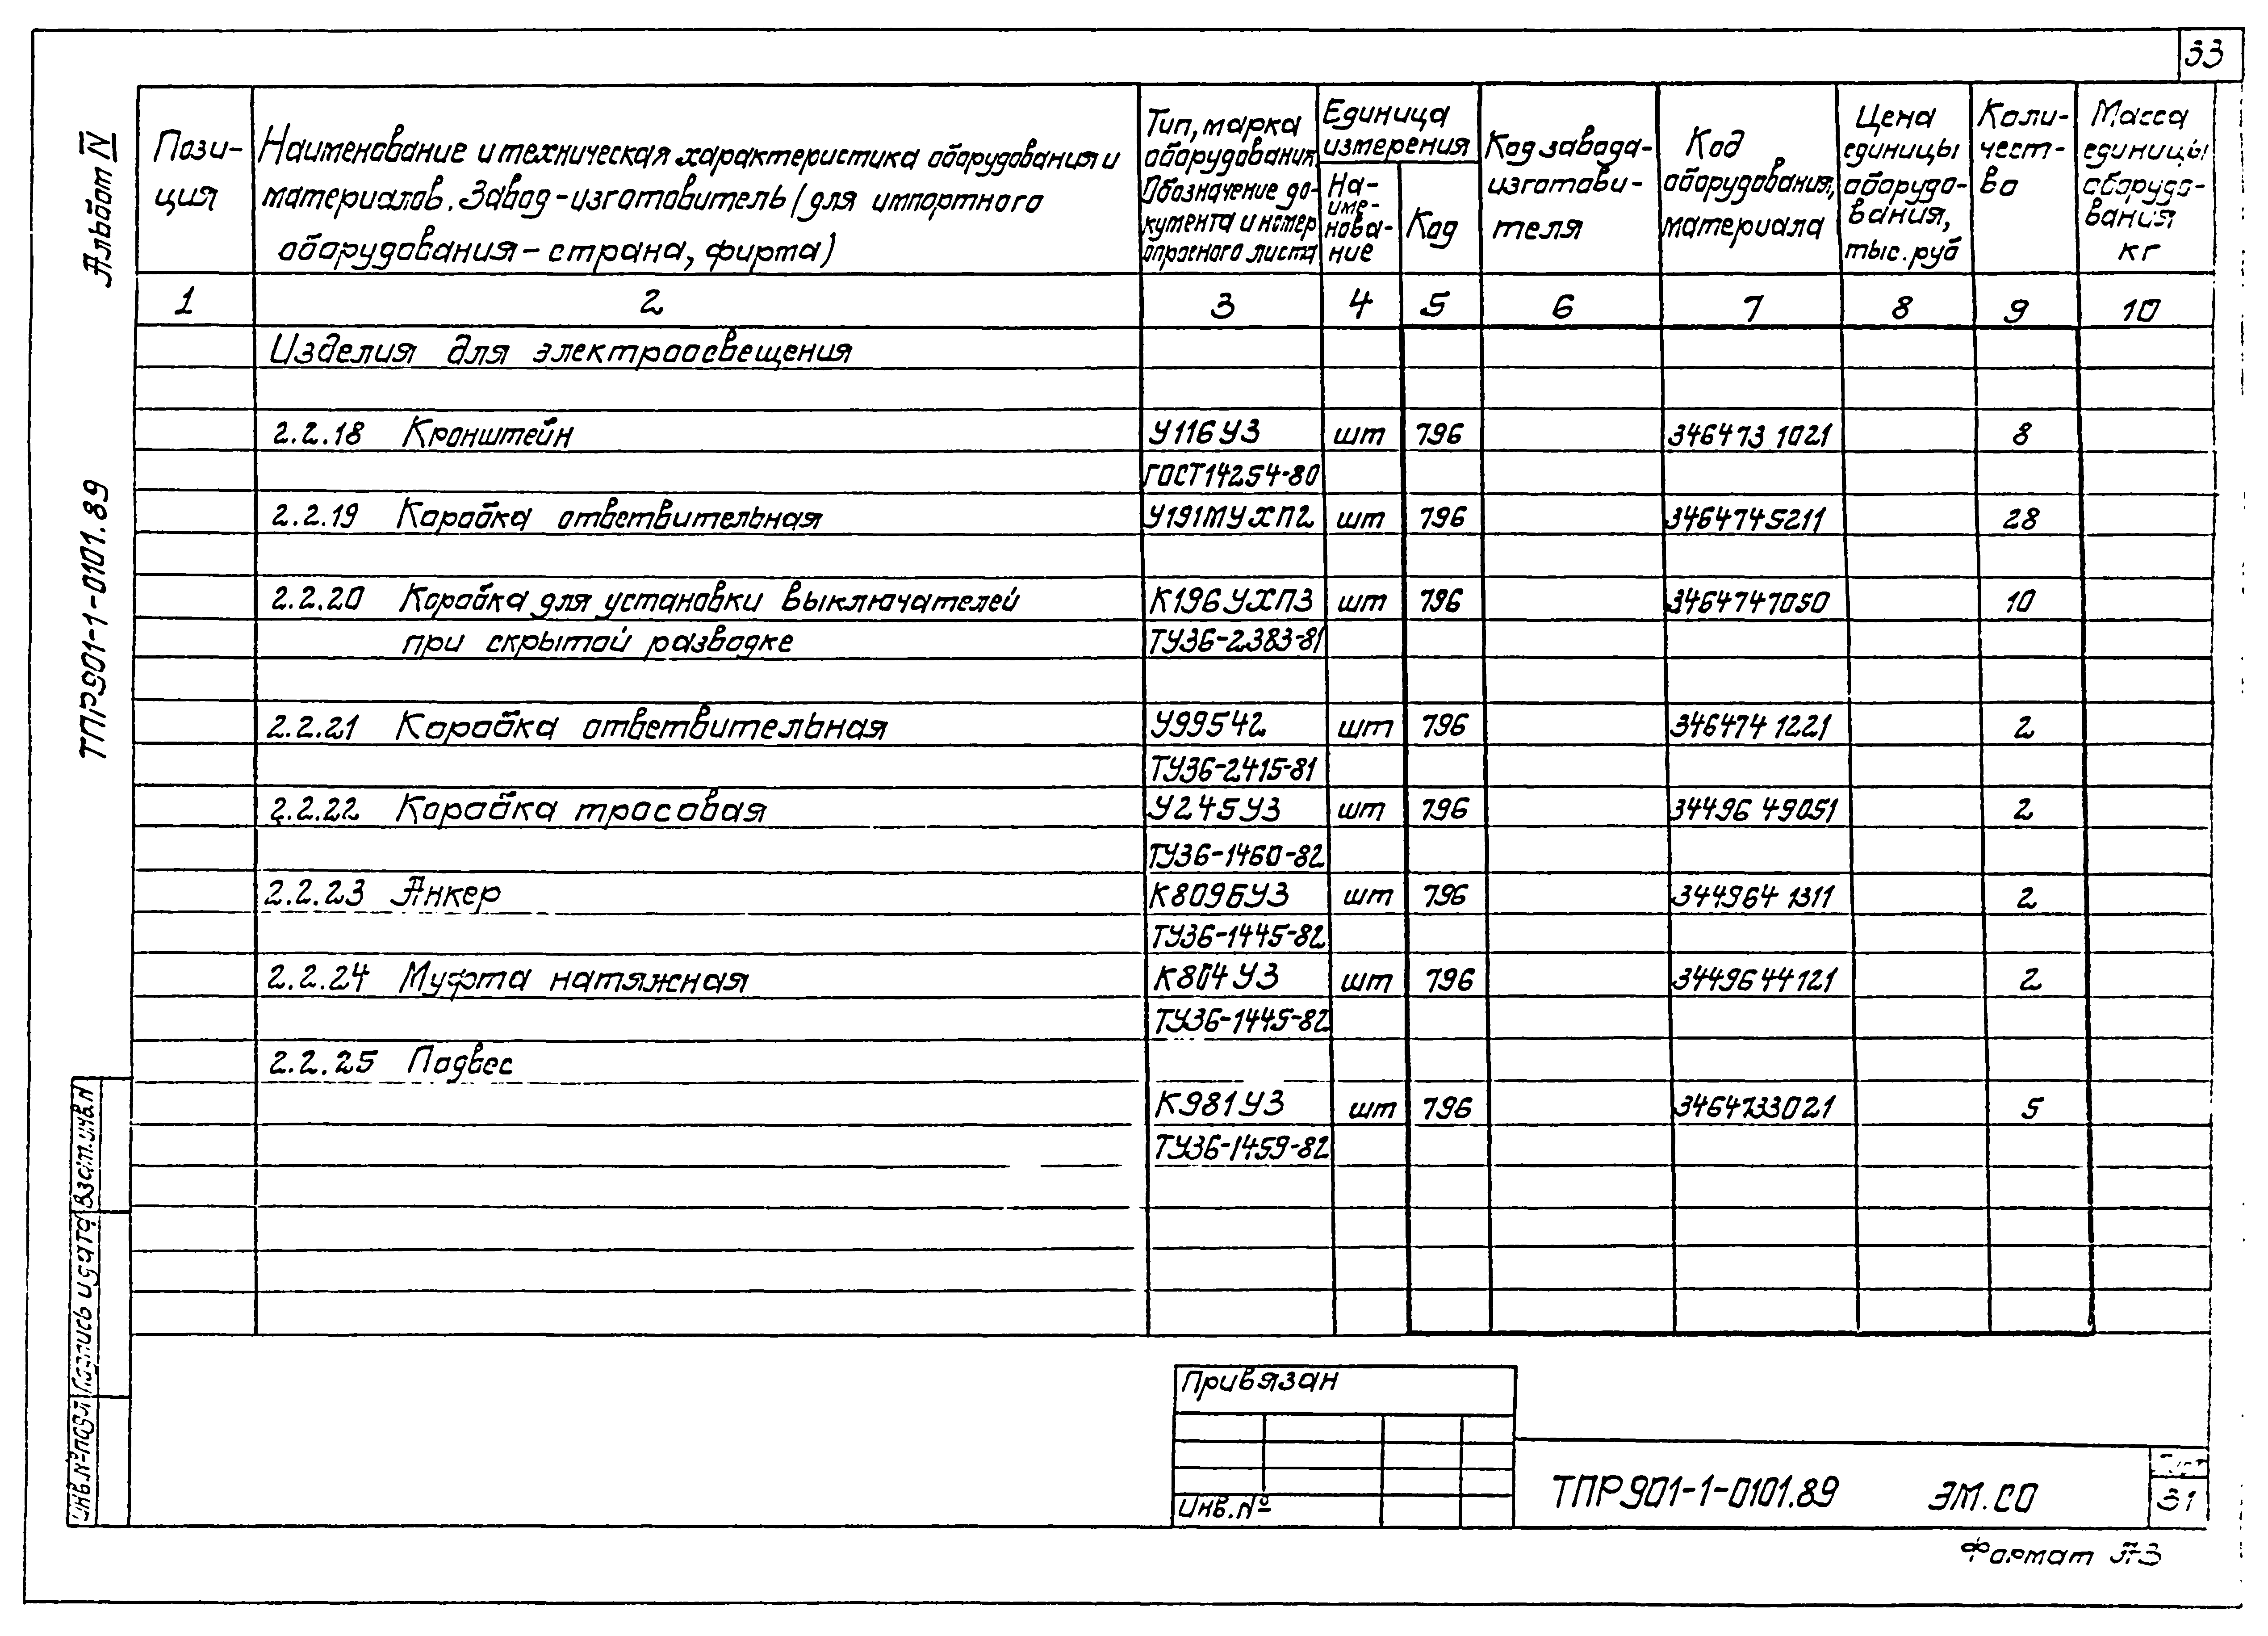 33
Альбом IV
ТПР901-1-0101.89
Пози-
ция
Наименование и техническая характеристика оборудования и
материалов. Завод-изготовитель (для импортного
оборудования - страна, фирма)
Тип, марка
оборудования.
Обозначение до-
кумента и номер
опросного листа
Единица
измерения
На-
име-
нова-
ние
Код
Код завода-
изготови-
теля
Код
оборудования,
материала
Цена
единицы
оборудо-
вания,
тыс. руб
Коли-
чест-
во
Масса
единицы
оборудо-
вания
кг
1 2 3 4 5 6 7 8 9 10
Изделия для электроосвещения
2.2.18 Кронштейн У116У3 шт 796 346473 1021 8
ГОСТ14254-80
2.2.19 Коробка ответвительная У191МУХЛ2 шт 796 3464745211 28
2.2.20 Коробка для установки выключателей К196УХЛ3 шт 796 3464747050 10
при скрытой разводке ТУ36-2383-81
2.2.21 Коробка ответвительная У99542 шт 796 346474 1221 2
ТУ36-2415-81
2.2.22 Коробка тросовая У245У3 шт 796 34496 49051 2
ТУ36-1460-82
2.2.23 Анкер К809БУ3 шт 796 344964 1311 2
ТУ36-1445-82
2.2.24 Муфта натяжная К804У3 шт 796 3449644121 2
ТУ36-1445-82
2.2.25 Подвес
К981У3 шт 796 3464733021 5
ТУ36-1459-82
Взам.инв.N
Подпись и дата
Инв.№подл
Привязан
Инв.№
ТПР901-1-0101.89 ЭМ.СО
Лист
31
Формат А3